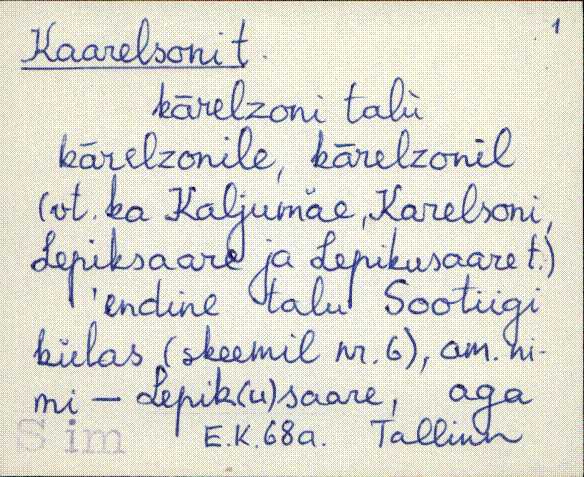 1
Kaarelsoni t.
kārelzoni talù
kārelzonile, kārelzonīl
(vt. ka Kaljumäe, Karelsoni,
Lepiksaare ja Lepikusaare t.)
'endine talu Sootiigi
külas (skeemil nr. 6), am. ni-
mi — Lepik(u)saare, aga
S im E.K.68a. Tallinn